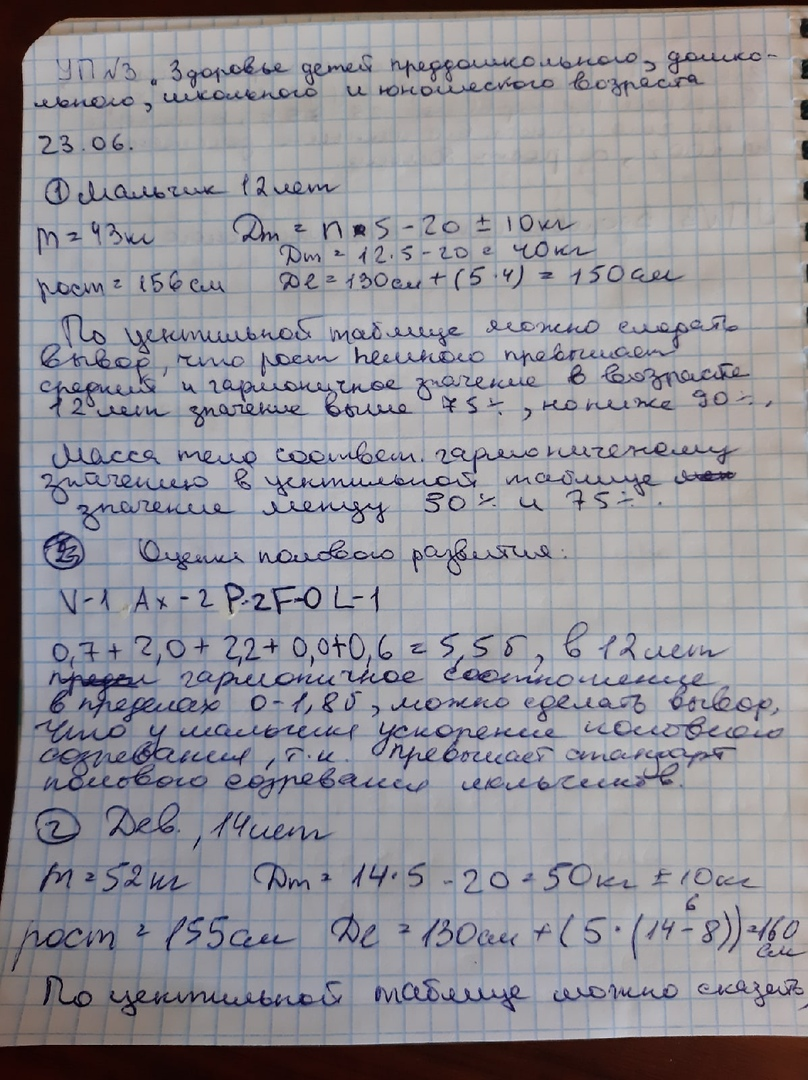 УП №3. Здоровье детей преддошкольного, дошко-
льного, школьного и юношеского возраста
23.06.
① Мальчик 12 лет
m = 43 кг Dm = n · 5 - 20 ± 10 кг
Dm = 12 · 5 - 20 = 40 кг
рост = 156 см Dl = 130 см + (5 · 4) = 150 см
По центильной таблице можно сделать
вывод, что рост немного превышает
средний и гармоничное значение в возрасте
12 лет значение выше 75%, но ниже 90%,
Масса тела соответ. гармоничному
значению в центильной таблице
значение между 50% и 75%.
Оценка полового развития:
V-1 Ax-2 P-2 F-0 L-1
0,7 + 2,0 + 2,2 + 0,0 + 0,6 = 5,5 б, в 12 лет
гармоничное соотношение
в пределах 0-1,8 б, можно сделать вывод,
что у мальчика ускорение полового
созревания, т.к. превышает стандарт
полового созревания мальчиков.
② Дев., 14 лет
m = 52 кг Dm = 14 · 5 - 20 = 50 кг ± 10 кг
рост = 155 см Dl = 130 см + (5 · (14 - 8)) = 160 см
6
По центильной таблице можно сказать,